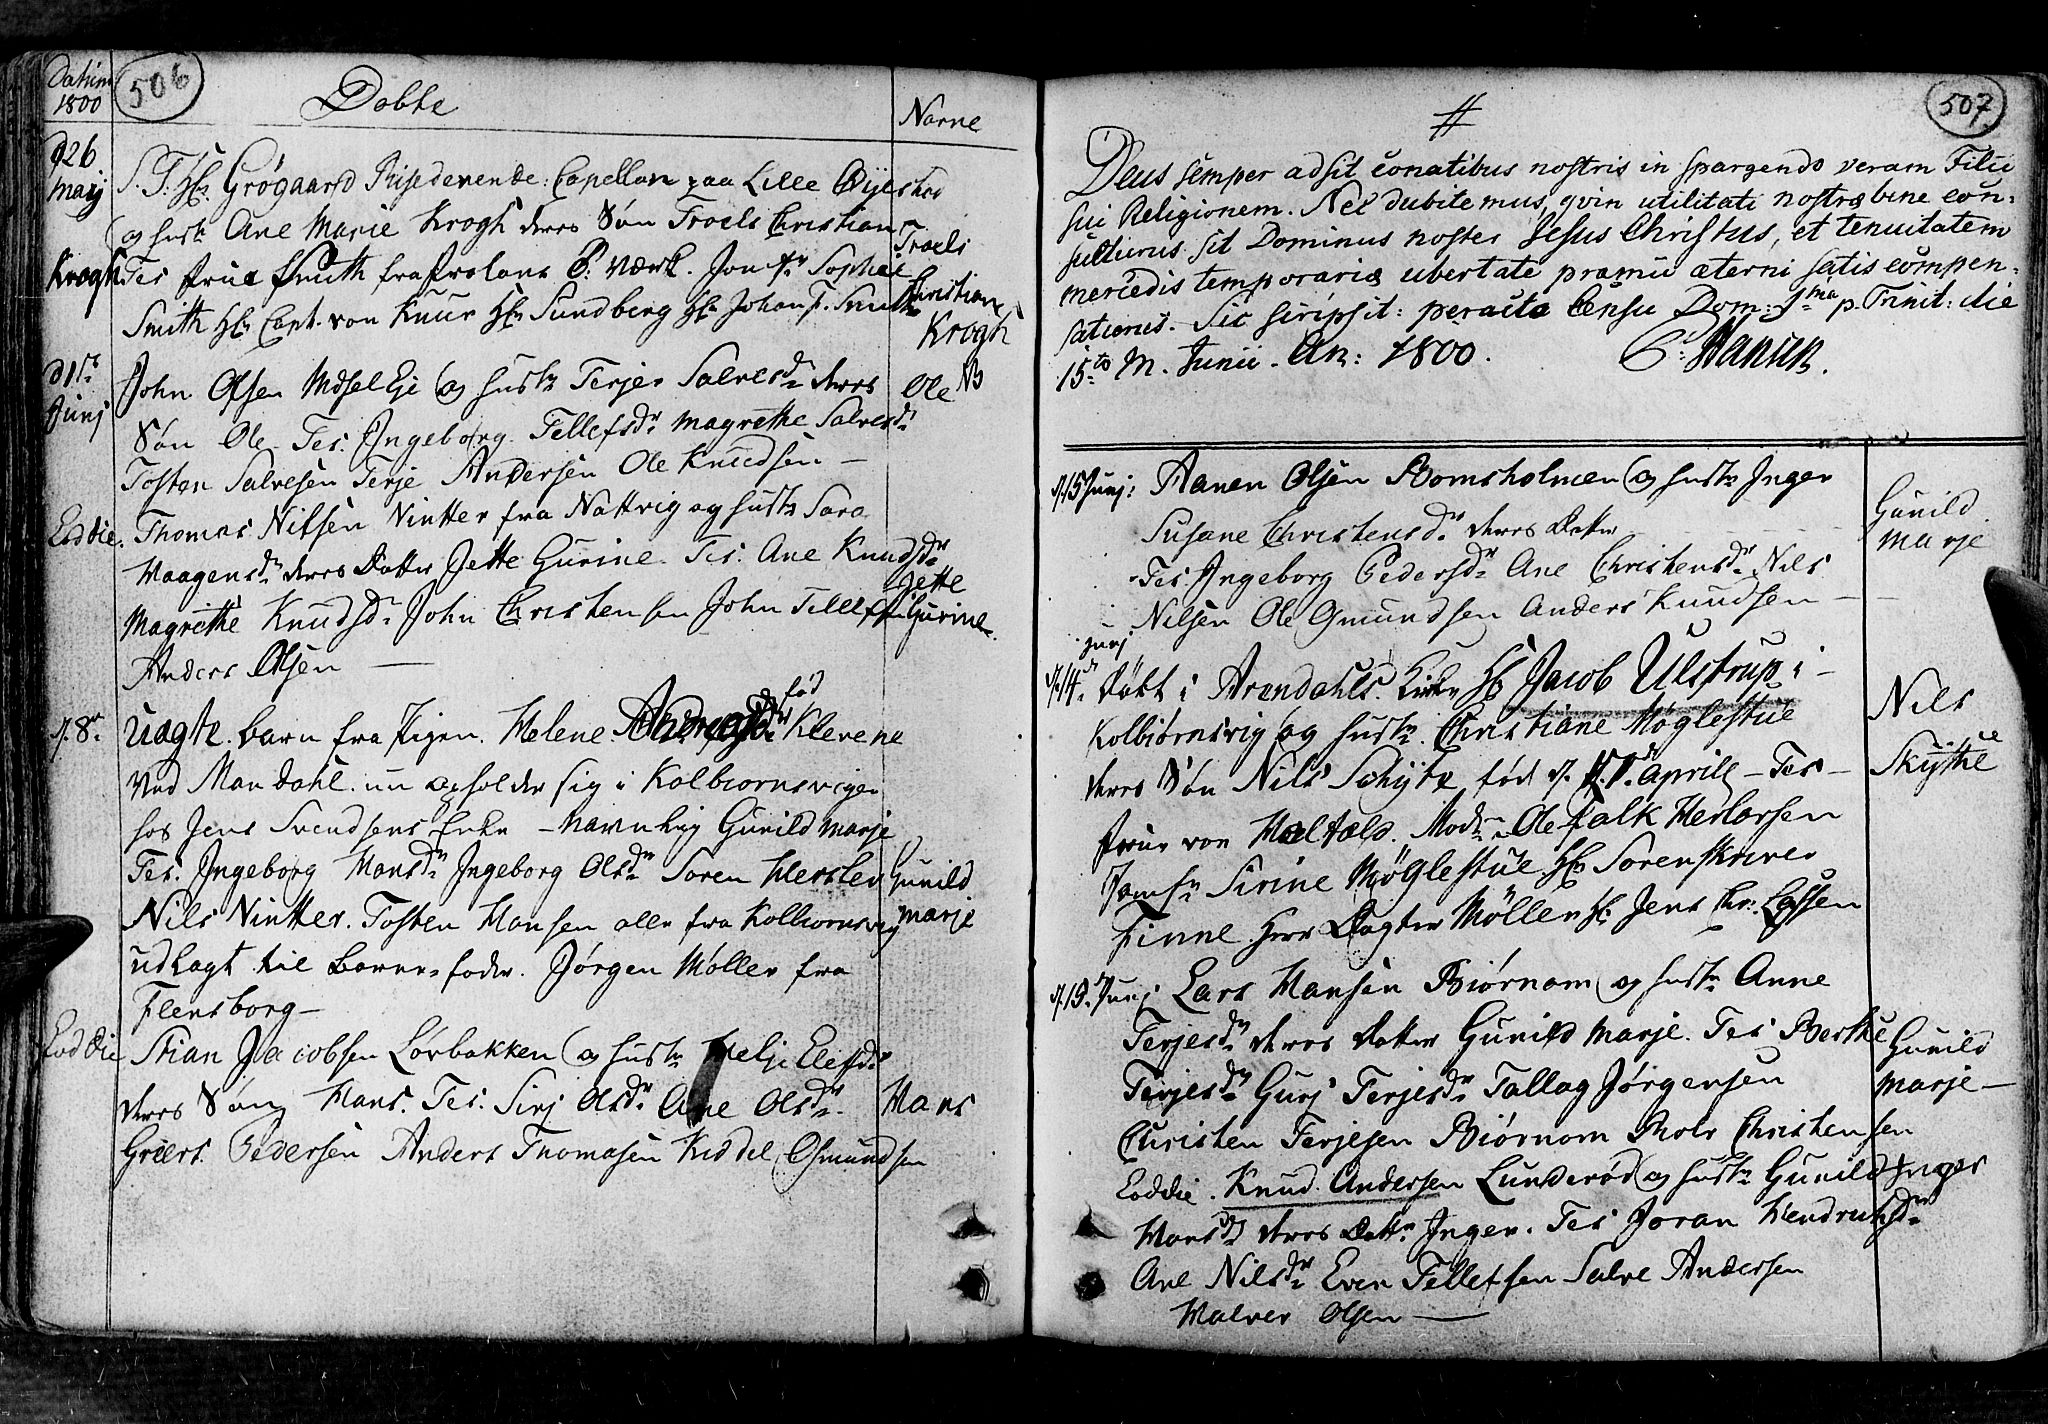 Datum
1800
506
Døbte
Navne
d 26
Maij
S. T. Hr. Grøgaard Residerende Capellan paa Lille
og hust: Ane Marie Krogh deres Søn Troels Christian
Troels
Christian
Krogh
Krogh Tes frue Smith fra Frolans P. Værk. Jomfr Sophie
Smith Hr. Capt. von Knur Hr. Sundberg Hr. Johan F. Smith
d 1ste
Junj
John Olsen Møsel Eje og hust: Terje Salvesdr deres
Ole NB
Søn Ole Tes. Ingeborg Tellefsdr Magrethe Salvesdr
Tostan Salvesen Terje Andersen Ole Knudsen —
Eod die. Thomas Nilsen Vintter fra Nattvig og hust: Sara
Haagensdr deres Datter Jette Gurine. Tes. Ane Knudsdr
Jette
Gurine
Magrethe Knudsd. John Christensen John Tellefs:
Anders Olsen —
d. 8de
Uægte barn fra Pigen. Helene Andreasdr fød Klevene
ved Mandahl. nu opholder sig i Kolbiornsvigen
hos Jens Svendsens Enke – Navnlig Gunild Marje
Tes. Ingeborg Hansdr Ingeborg Olsdr Soren Herslev
Gunild
Marje
Nils Vintter. Tosten Hansen alle fra Kolbiornsvig
udlagt til Barne-fader. Jørgen Møller fra
Flensborg —
Eod die Stian Jacobsen Løvbakken og hust: Helje Elefsdr
deres Søn Hans. Tes. Sirj Olsdr Ane Olsdr.
Hans
Griers Pedersen Anders Thomasen Kiddel Osmundsen
507
#
Deus semper adsit conatibus nostris in spargendo veram Filii
sui Religionem. Nec dubitemus, qvin utilitati nostræ bene con-
sulturus sit Dominus noster Jesus Christus, et tenuitatem
mercedis temporariæ ubertate præmii æterni satis compen-
saturus. Sic scripsit: peracto Censu Dom: 1ma p. Trinit: die
15to M. Junii. An: 1800.
C: Hansen.
d. 15 Junj: Aanen Olsen Bomsholmen og hust: Inger
Susane Christensdr deres Datter
Gunild
Marje
Tes. Ingeborg Pedersdr Ane Christensdr Nils
Nilsen Ole Gmundsen Anders Knudsen —
Junj
d. 14de Døbt i Arendahls Kirke Hr Jacob Ulstrup i
Kolbiørnsvig og hust: Christiane Møglestue
Nils
Skytte
deres Søn Nils Schytte fød d. 1. April – Tes –
Frue von Heltals. Mod. Ole Falk Herlofsen
Jomfr Sirine Møglestue Hr Sorenskriver
Finne Herr Dogter Møller Hr Jens Chr. Lassen
d. 19. Junj Lars Hansen Biørnom og hust: Anne
Terjesdr deres Datter Gunild Marje. Tes Berthe
Gunild
Marje —
Terjesdr Gurj Terjesdr Tallag Jørgensen
Christen Terjesen Biørnom Christensen
Eod die. Knud Andersen Lunderød og hust: Gunild
Inger
Hansdr deres Dattr Inger. Tes Joran Hendriksdr
Ane Nilsdr Even Tellefsen Salve Andersen
Halver Olsen —